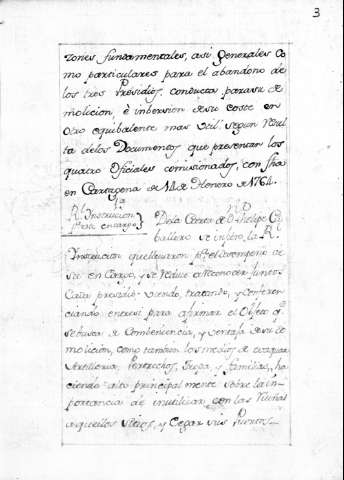 3
zones fundamentales, asi Generales co
mo particulares para el abandono de
los tres Presidios, conducta para su de
molicion, è inbersion de su coste en
otro equibalente mas util, segun resul
ta de los Documentos que presentan los
quatro Oficiales comisionados, con fha
en Cartagena de 14 de Henero de 1764.
Rl. Instruccion
para en cargo
De la Carta de Dn. Phelipe Ca
ballero se infiere, la Rl.
Instrucion que llevaron pa. el desempeño de
su en Cargo, y se reduce a reconocer juntos
Cada presidio viendo, tratando, y conferen
ciando entre si para afirmar el Objeto qe.
se busca de Combeniencia, y ventaja de su de
molicion, como tambien los medios de
Artilleria, Pertrechos, Tropa, y familias, ha
ciendo alto principalmente sobre la in-
portancia de inutilizar con las Ruinas
aquellos sitios, y Cegar sus Puertos